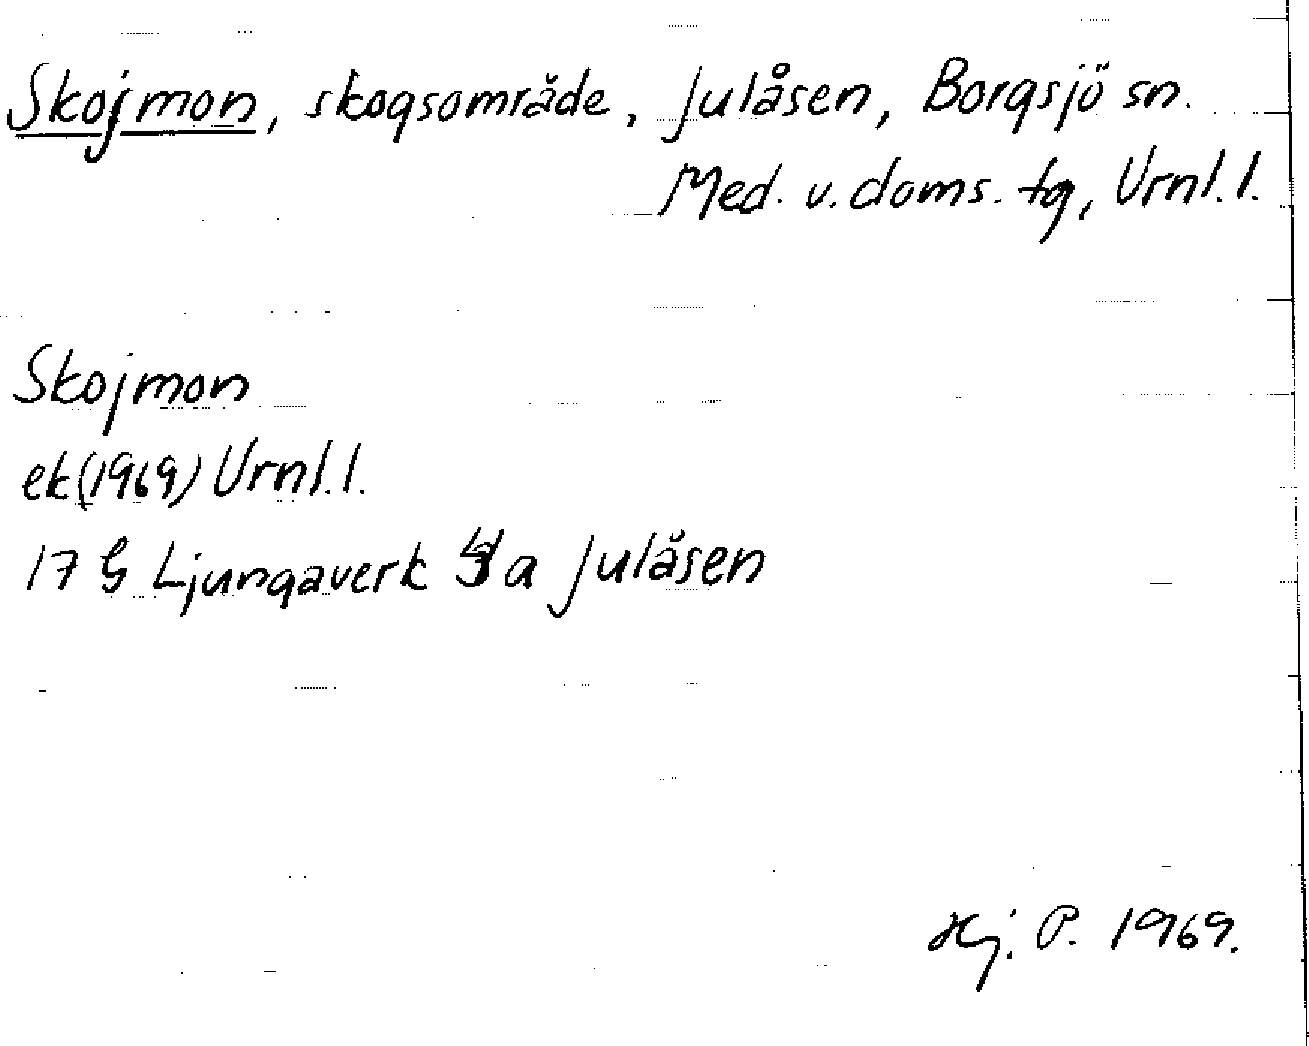 Skojmon, skogsområde, Julåsen, Borgsjö sn.
Med. v. doms. tg, Vrnl. l.
Skojmon
ek (1969) Vrnl. l.
17 G Ljungaverk a Julåsen
Hj. P. 1969.